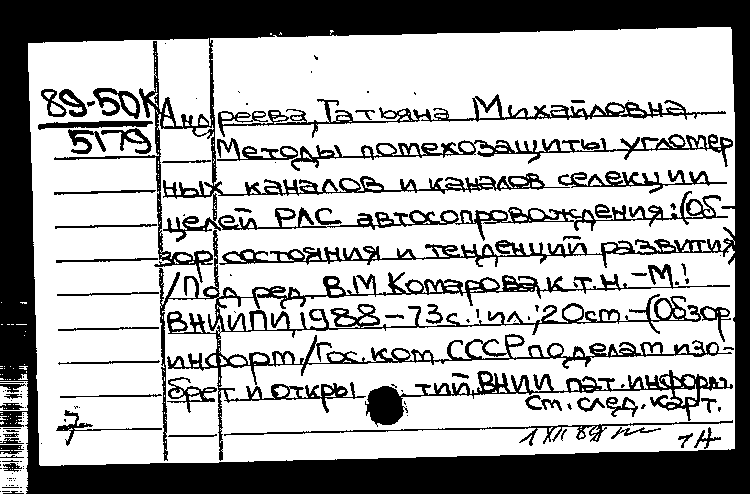 89-50К
5179
Андреева, Татьяна Михайловна.
Методы помехозащиты угломер
ных каналов и каналов селекции
целей РЛС автосопровождения: (Об-
зор состояния и тенденций развития)
/Под ред. В.М. Комарова, к.т.н. -М.:
ВНИИПИ, 1988.-73с.: ил.; 20см.-(Обзор.
информ./Гос.ком. СССР по делам изо-
брет. и откры тий, ВНИИ пат. информ.
См. след. карт.
7
1 XII 89